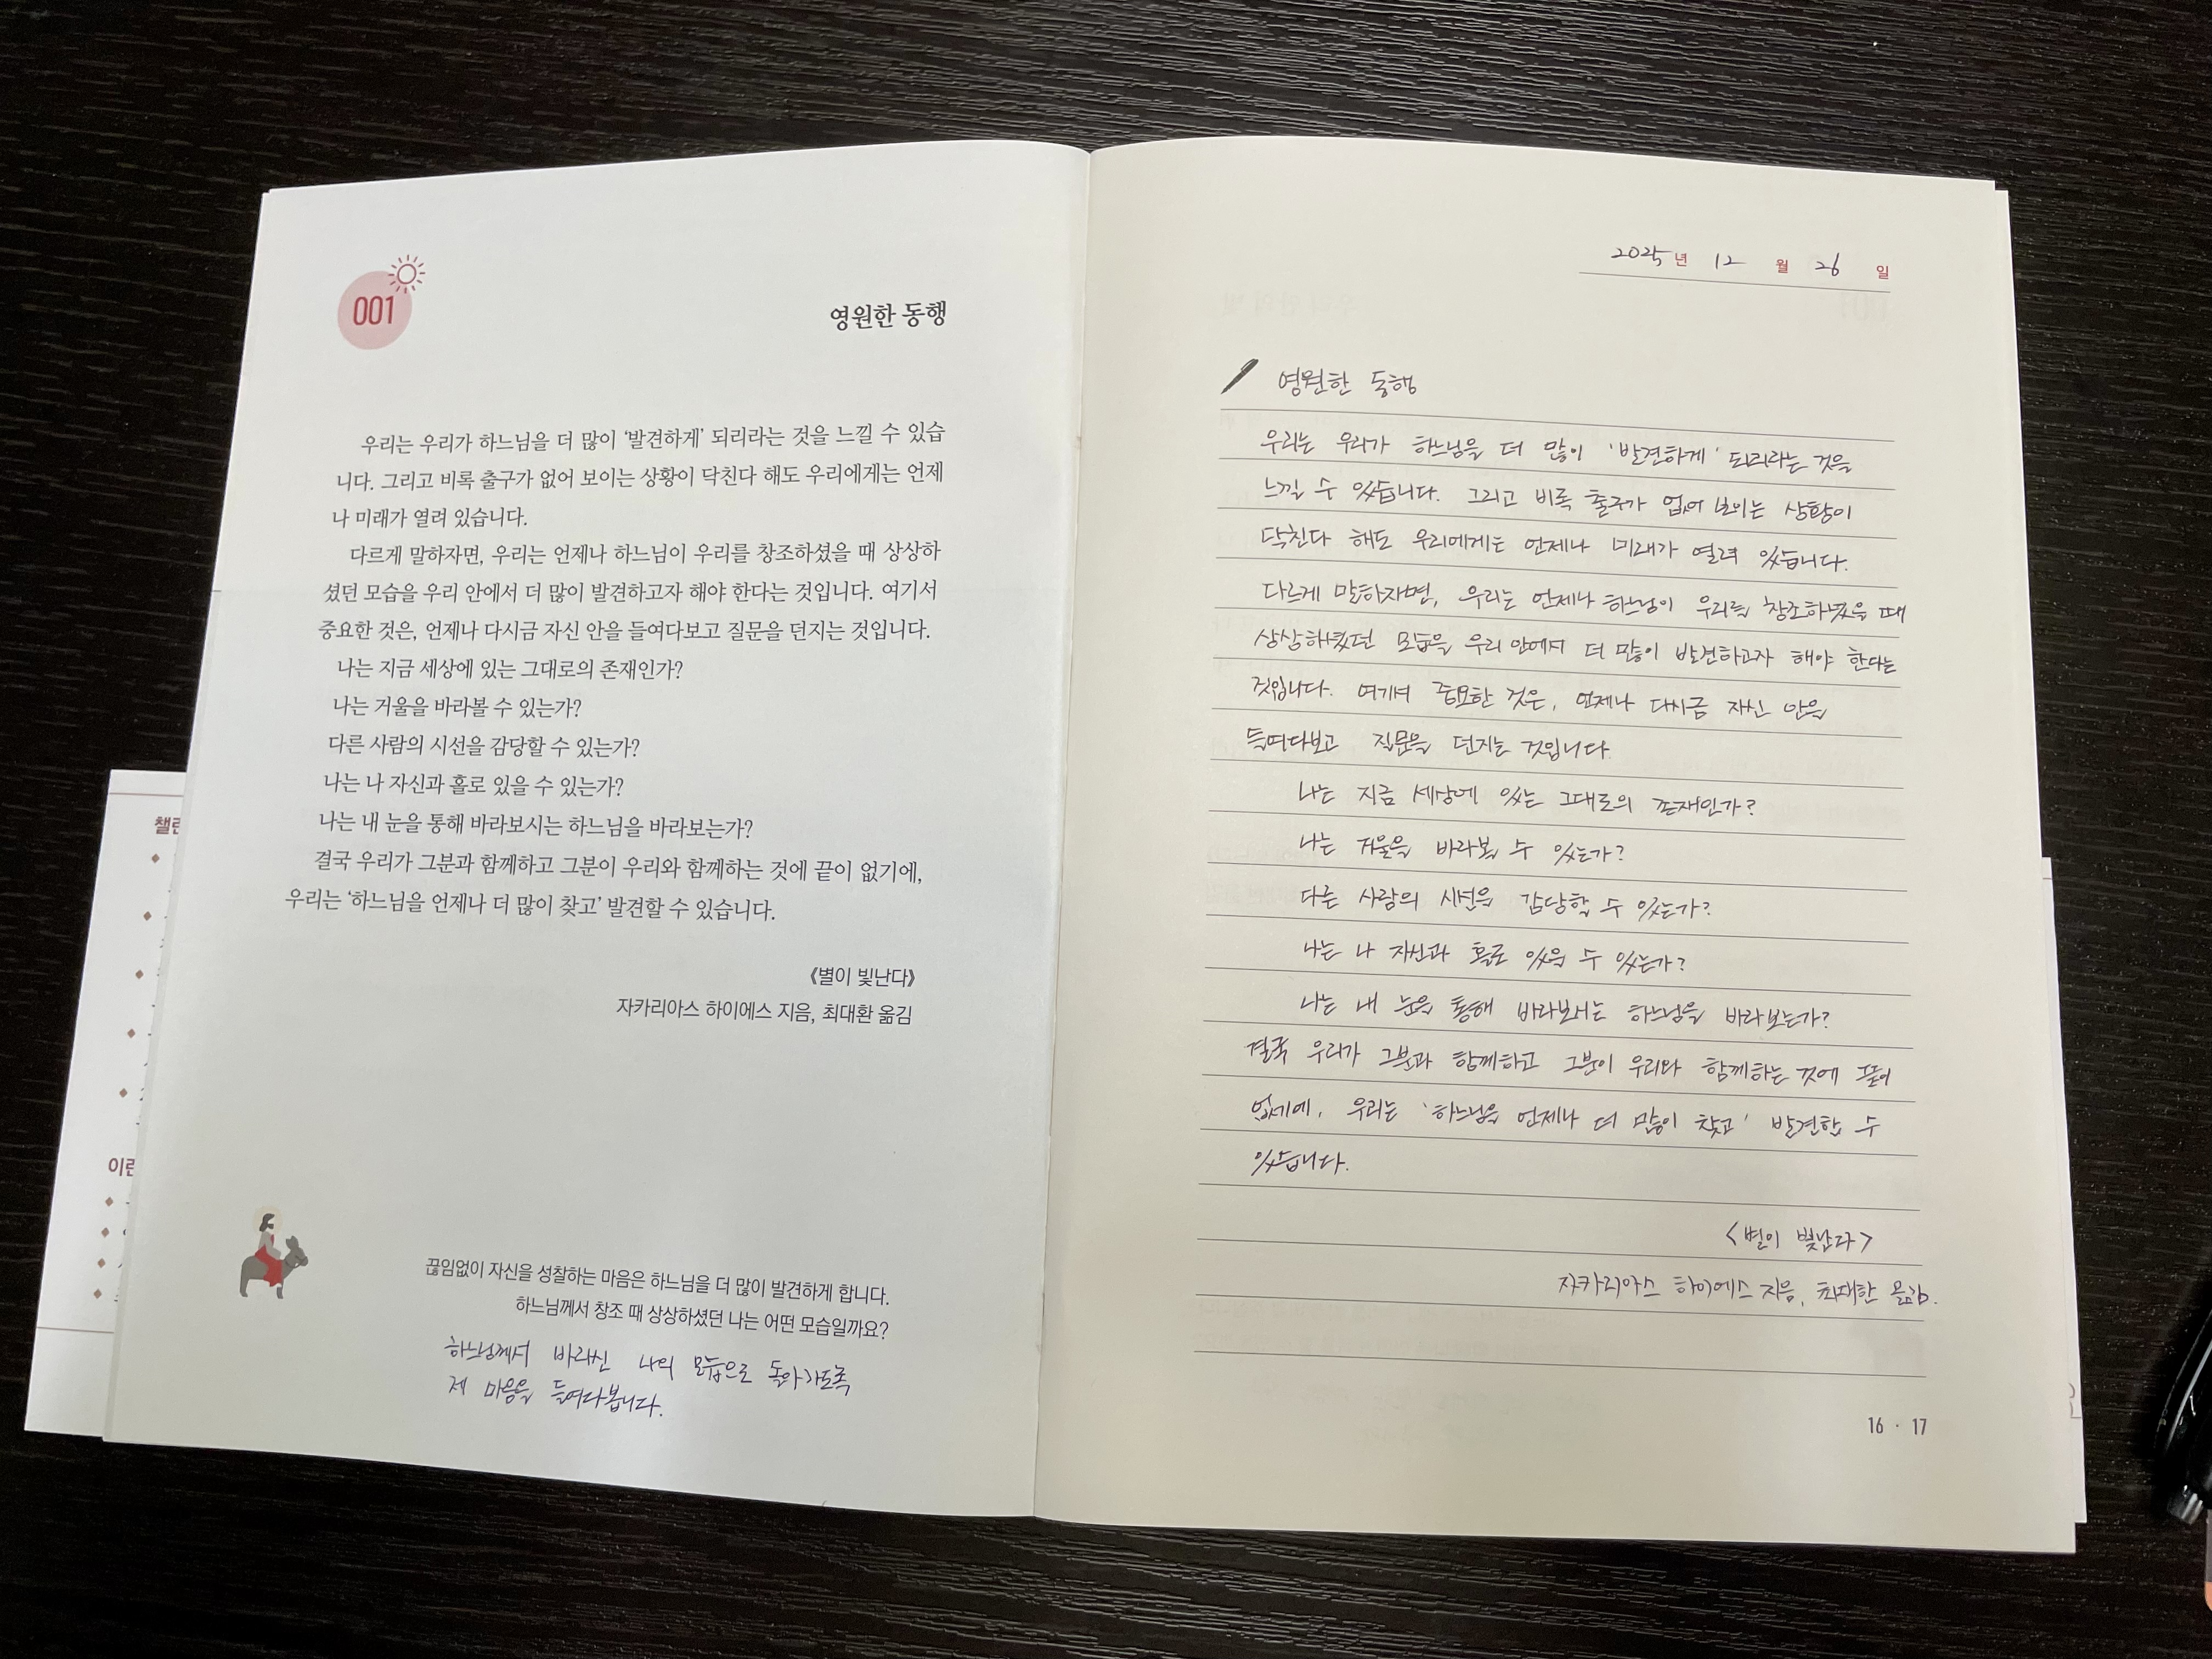 001
영원한 동행
우리는 우리가 하느님을 더 많이 ‘발견하게’ 되리라는 것을 느낄 수 있습
니다. 그리고 비록 출구가 없어 보이는 상황이 닥친다 해도 우리에게는 언제
나 미래가 열려 있습니다.
다르게 말하자면, 우리는 언제나 하느님이 우리를 창조하셨을 때 상상하
셨던 모습을 우리 안에서 더 많이 발견하고자 해야 한다는 것입니다. 여기서
중요한 것은, 언제나 다시금 자신 안을 들여다보고 질문을 던지는 것입니다.
나는 지금 세상에 있는 그대로의 존재인가?
나는 거울을 바라볼 수 있는가?
다른 사람의 시선을 감당할 수 있는가?
나는 나 자신과 홀로 있을 수 있는가?
나는 내 눈을 통해 바라보시는 하느님을 바라보는가?
결국 우리가 그분과 함께하고 그분이 우리와 함께하는 것에 끝이 없기에,
우리는 ‘하느님을 언제나 더 많이 찾고’ 발견할 수 있습니다.
《별이 빛난다》
자카리아스 하이에스 지음, 최대환 옮김
끊임없이 자신을 성찰하는 마음은 하느님을 더 많이 발견하게 합니다.
하느님께서 창조 때 상상하셨던 나는 어떤 모습일까요?
하느님께서 바라신 나의 모습으로 돌아가도록
제 마음을 들여다봅니다.
챌린
이런
2025년 12월 26일
영원한 동행
우리는 우리가 하느님을 더 많이 '발견하게' 되리라는 것을
느낄 수 있습니다. 그리고 비록 출구가 없어 보이는 상황이
닥친다 해도 우리에게는 언제나 미래가 열려 있습니다.
다르게 말하자면, 우리는 언제나 하느님이 우리를 창조하셨을 때
상상하셨던 모습을 우리 안에서 더 많이 발견하고자 해야 한다는
것입니다. 여기서 중요한 것은, 언제나 다시금 자신 안을
들여다보고 질문을 던지는 것입니다.
나는 지금 세상에 있는 그대로의 존재인가?
나는 거울을 바라볼 수 있는가?
다른 사람의 시선을 감당할 수 있는가?
나는 나 자신과 홀로 있을 수 있는가?
나는 내 눈을 통해 바라보시는 하느님을 바라보는가?
결국 우리가 그분과 함께하고 그분이 우리와 함께하는 것에 끝이
없기에, 우리는 '하느님을 언제나 더 많이 찾고' 발견할 수
있습니다.
<별이 빛난다>
자카리아스 하이에스 지음, 최대환 옮김.
16 · 17